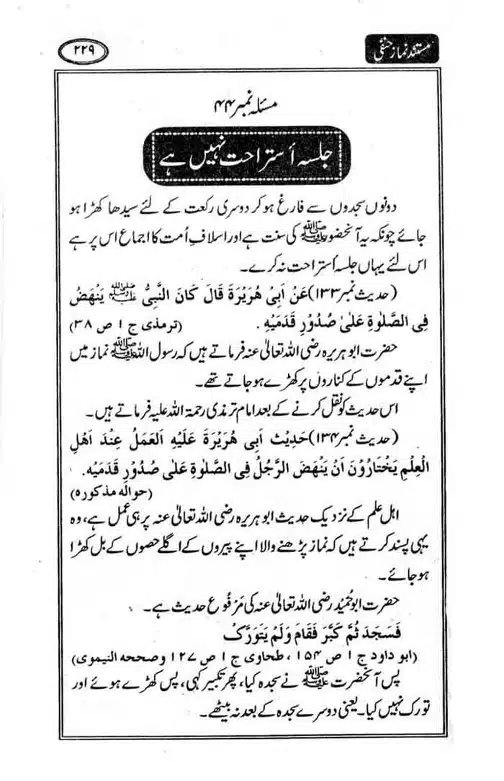 مستند نماز حنفی
۲۲۹
مسئلہ نمبر ۴۴
جلسہ أستراحت نہیں ہے
دونوں سجدوں سے فارغ ہو کر دوسری رکعت کے لئے سیدھا کھڑا ہو
جائے چونکہ یہ آنحضور ﷺ کی سنت ہے اور اسلافِ اُمت کا اجماع اس پر ہے
اس لئے یہاں جلسہ أستراحت نہ کرے۔
(حدیث نمبر ۱۳۳) عَنْ اَبِیْ هُرَيْرَةَ قَالَ کَانَ النَّبِیُّ ﷺ یَنْهَضُ
فِی الصَّلٰوةِ عَلٰی صُدُوْرِ قَدَمَیْهِ . (ترمذی ج ۱ ص ۳۸)
حضرت ابو ہریرہ رضی اللہ تعالیٰ عنہ فرماتے ہیں کہ رسول اللہ ﷺ نماز میں
اپنے قدموں کے کناروں پر کھڑے ہو جاتے تھے۔
اس حدیث کو نقل کرنے کے بعد امام ترمذی رحمۃ اللہ علیہ فرماتے ہیں۔
(حدیث نمبر ۱۳۴) حَدِیْثُ اَبِی هُرَیْرَةَ عَلَیْهِ الْعَمَلُ عِنْدَ اَهْلِ
الْعِلْمِ یَخْتَارُوْنَ اَنْ یَنْهَضَ الرَّجُلُ فِی الصَّلٰوةِ عَلٰی صُدُوْرِ قَدَمَیْهِ.
(حوالہ مذکورہ)
اہل علم کے نزدیک حدیث ابو ہریرہ رضی اللہ تعالیٰ عنہ پر ہی عمل ہے، وہ
یہی پسند کرتے ہیں کہ نماز پڑھنے والا اپنے پیروں کے اگلے حصوں کے بل کھڑا
ہو جائے۔
حضرت ابو حُمَید رضی اللہ تعالیٰ عنہ کی مَرفُوع حدیث ہے۔
فَسَجَدَ ثُمَّ کَبَّرَ فَقَامَ وَلَمْ یَتَوَرَّکْ
(ابو داود ج ۱ ص ۱۵۴، طحاوی ج ۱ ص ۱۲۷ وصححه النیموی)
پس آنحضرت ﷺ نے سجدہ کیا، پھر تکبیر کہی، پس کھڑے ہوئے اور
تورک نہیں کیا۔ یعنی دوسرے سجدہ کے بعد نہ بیٹھے۔